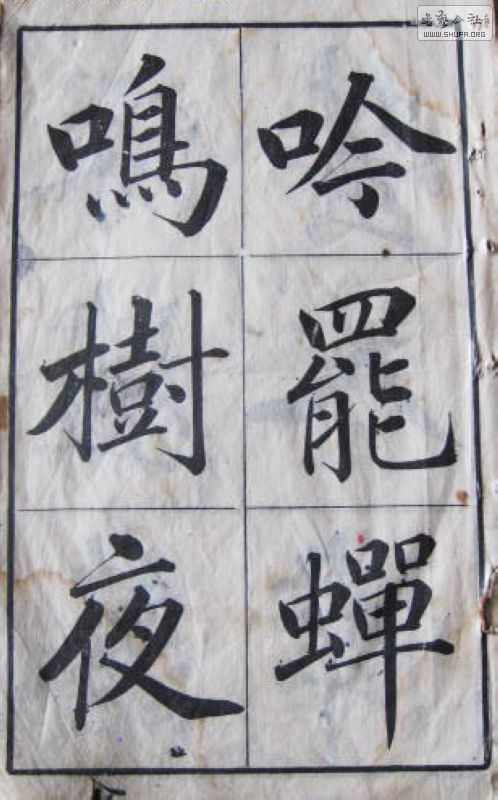 吟罷蟬
鳴樹夜
书艺公社
WWW.SHUFA.ORG